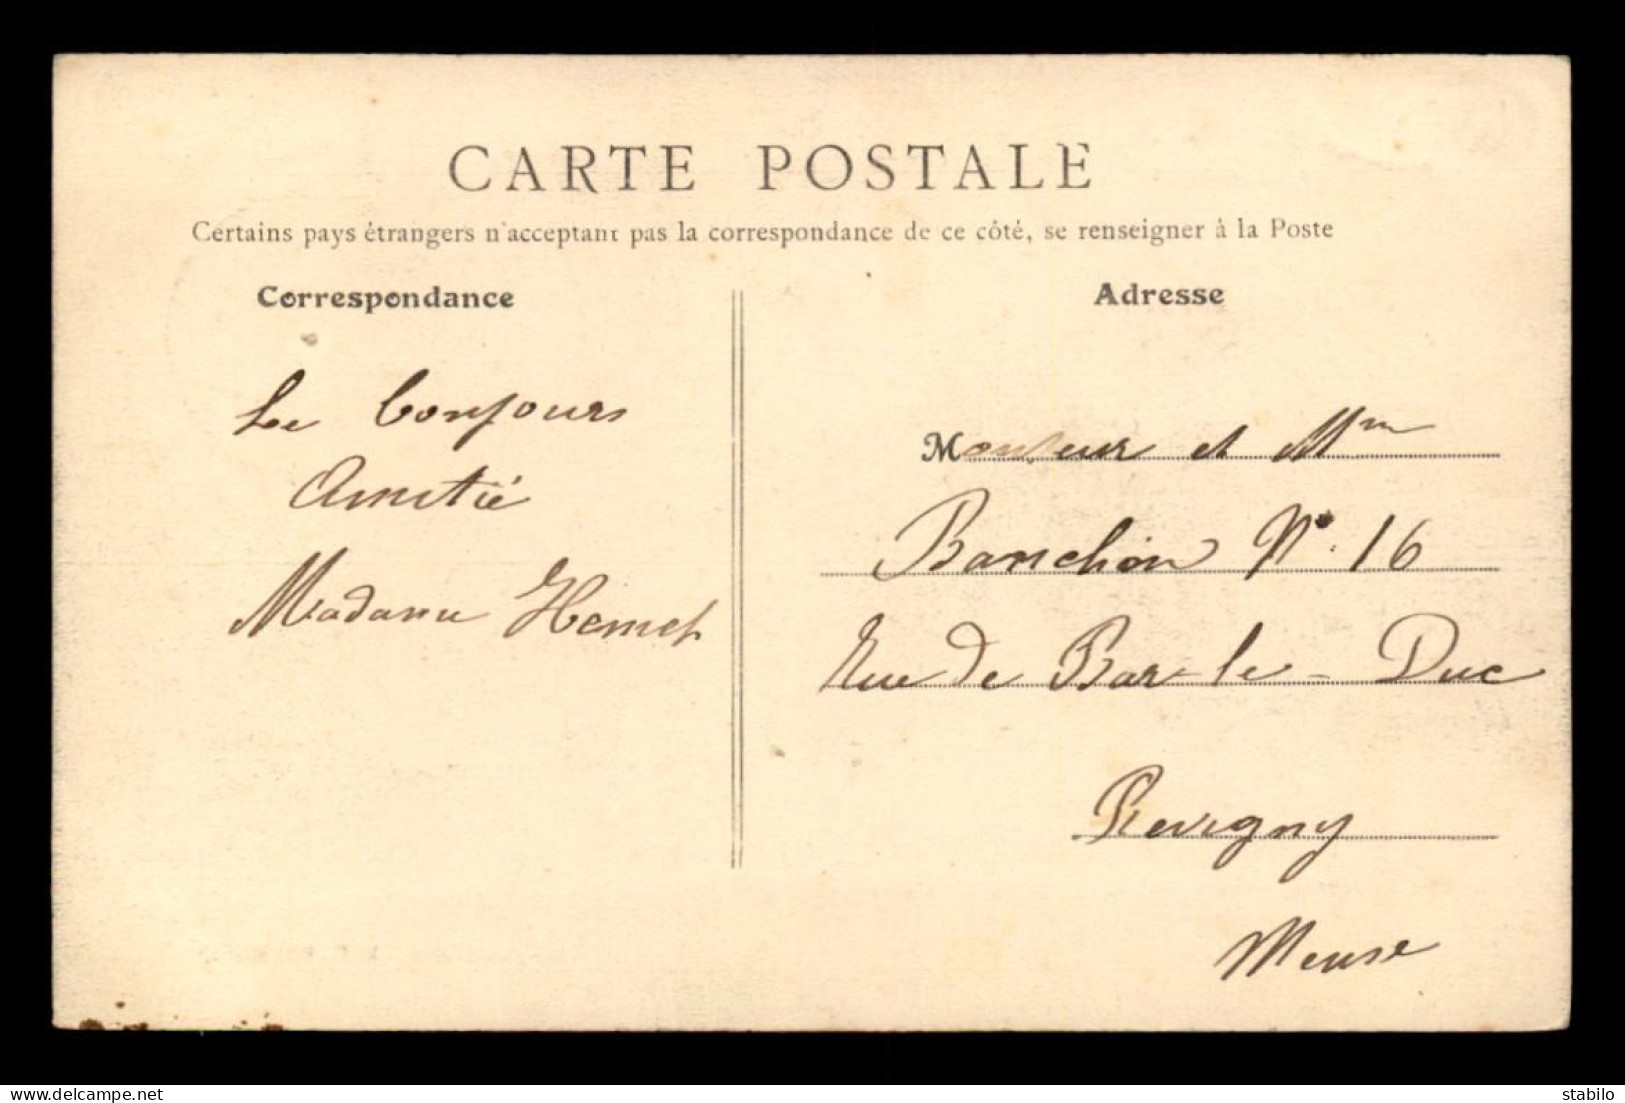 CARTE POSTALE
Certains pays étrangers n'acceptant pas la correspondance de ce côté, se renseigner à la Poste
Correspondance
Le bonjours
Amitié
Madame Hemet
Adresse
Monsieur et Mm
Banchon N° 16
Rue de Bar-le-Duc
Revigny
Meuse
www.delcampe.net
stabilo